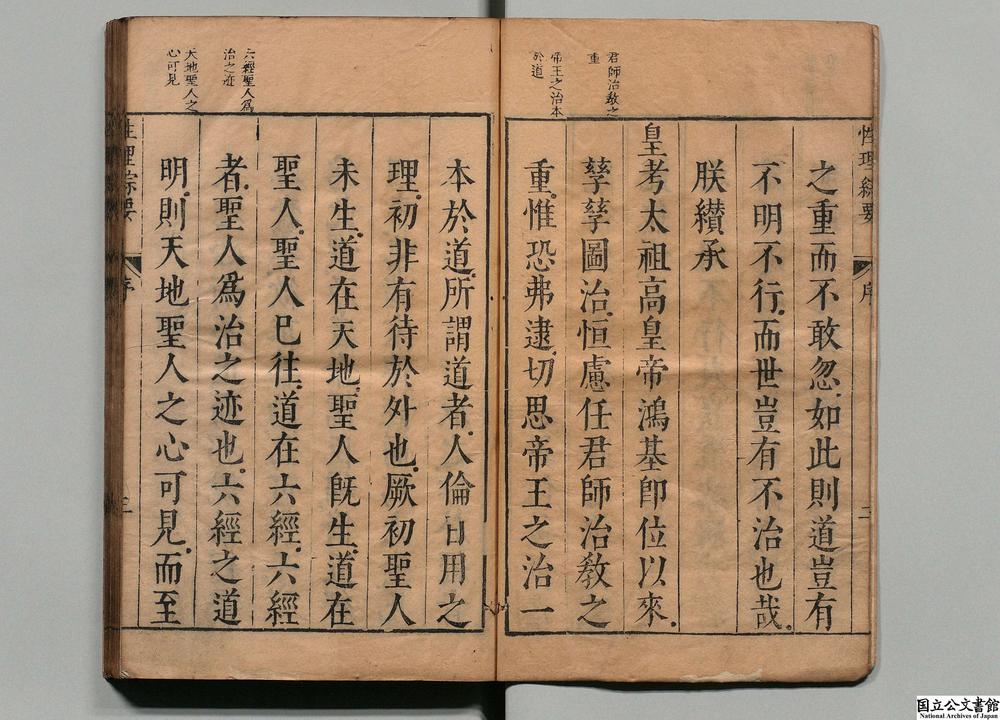 性理綜要
序
二
君師治教之
重
帝王之治本
於道
之重而不敢忽。如此則道豈有
不明不行。而世豈有不治也哉。
朕纘承
皇考太祖高皇帝鴻基卽位以來。
孳孳圖治。恒慮任君師治教之
重。惟恐弗逮。切思帝王之治一
六經聖人爲
治之迹
天地聖人之
心可見
本於道。所謂道者。人倫日用之
理。初非有待於外也。厥初聖人
未生。道在天地。聖人旣生。道在
聖人。聖人已往。道在六經。六經
者。聖人爲治之迹也。六經之道
明。則天地聖人之心可見。而至
性理綜要
序
三
国立公文書館
National Archives of Japan